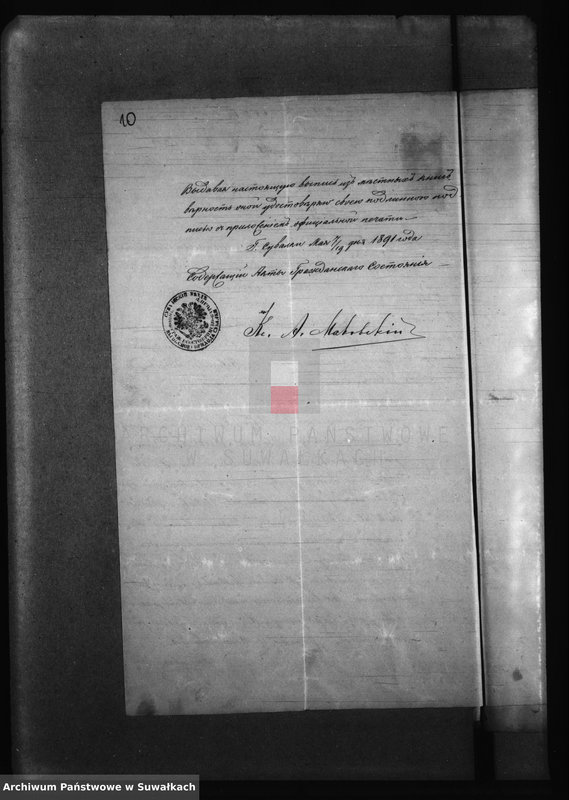 10
Выдавая настоящую выпись изъ местныхъ книгъ
верность оной удостоверяю своею подлинною под
писью съ приложеніемъ официальной печати.—
Г. Сувалки Мая 7/19 дня 1891 года
Содержащій Акты Гражданскаго Состоянія —
Кс. А.
ARCHIWUM PAŃSTWOWE
W SUWAŁKACH
Archiwum Państwowe w Suwałkach